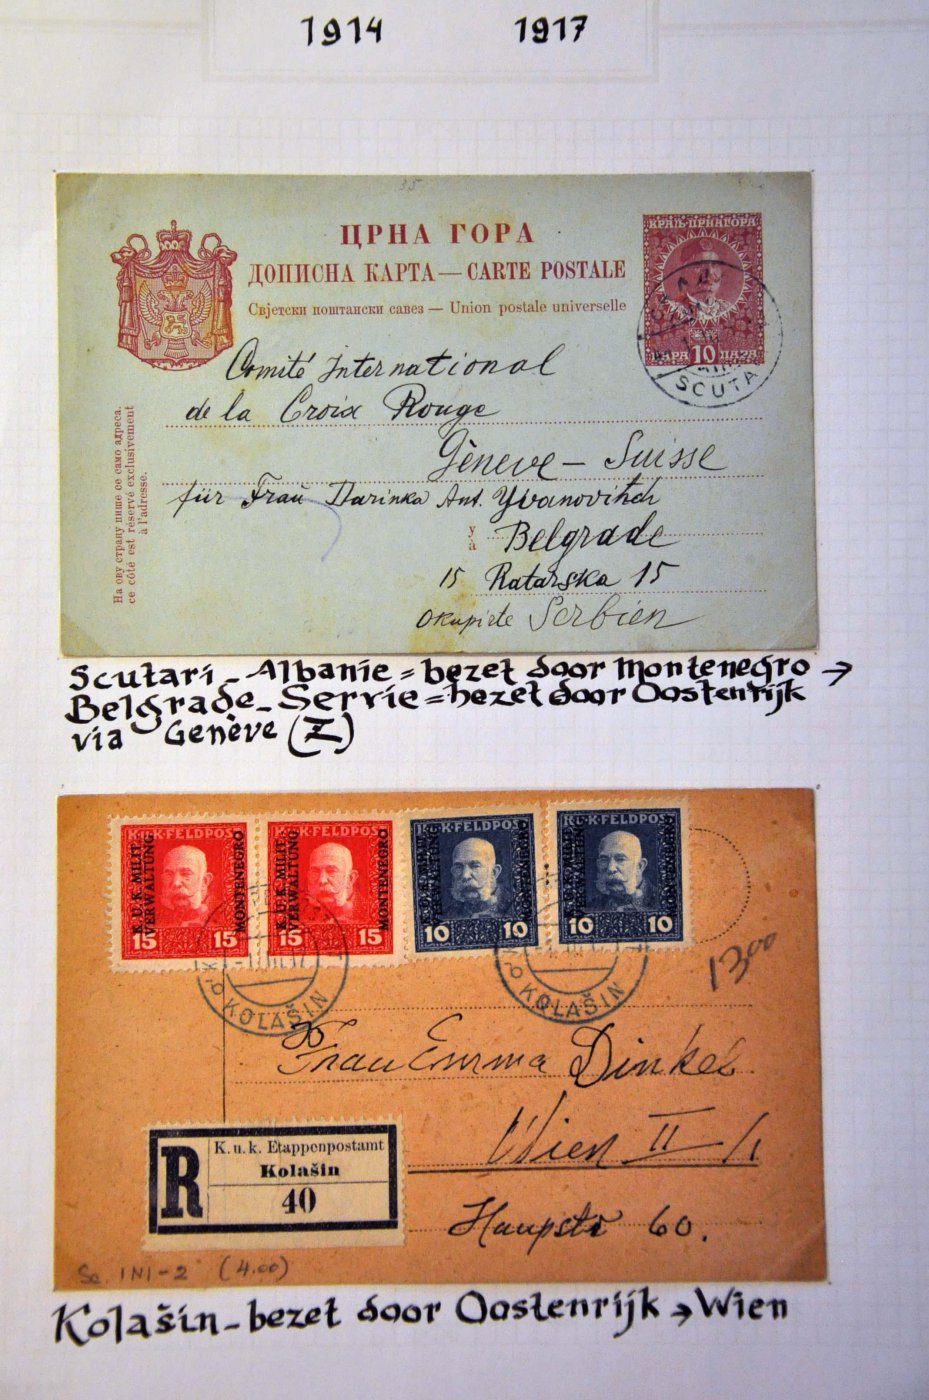 1914 1917
35
ЦРНА ГОРА
ДОПИСНА КАРТА — CARTE POSTALE
Свјетски поштански савез — Union postale universelle
КРАЉ·ЦРНАГОРА
ПАРА 10 ПАРА
SCUTA
Comité International
de la Croix Rouge
Gèneve – Suisse
für Frau Darinka Ant. Yvanovitch
у
à
Belgrade
15 Ratarska 15
Okupirte Serbien
На ову страну пише се само адреса.
ce côté est réservé exclusivement
à l'adresse.
Scutari – Albanie = bezet door Montenegro →
Belgrade – Servie = bezet door Oostenrijk
via Genève (Z)
K.U.K. FELDPOST K.U.K. FELDPOST K.U.K. FELDPOST K.U.K. FELDPOST
K.U.K. MILIT. VERWALTUNG MONTENEGRO
K.U.K. MILIT. VERWALTUNG MONTENEGRO
K.U.K. MILIT. VERWALTUNG
K.U.K. MILIT. VERWALTUNG
15 15 15 15 10 10 10 10
KOLAŠIN
KOLAŠIN
1300
Frau Emma Dinkel
Wien II/1
Haupstr 60.
R
K. u. k. Etappenpostamt
Kolašin
40
Sc. 1N1-2 (4.00)
Kolašin – bezet door Oostenrijk → Wien